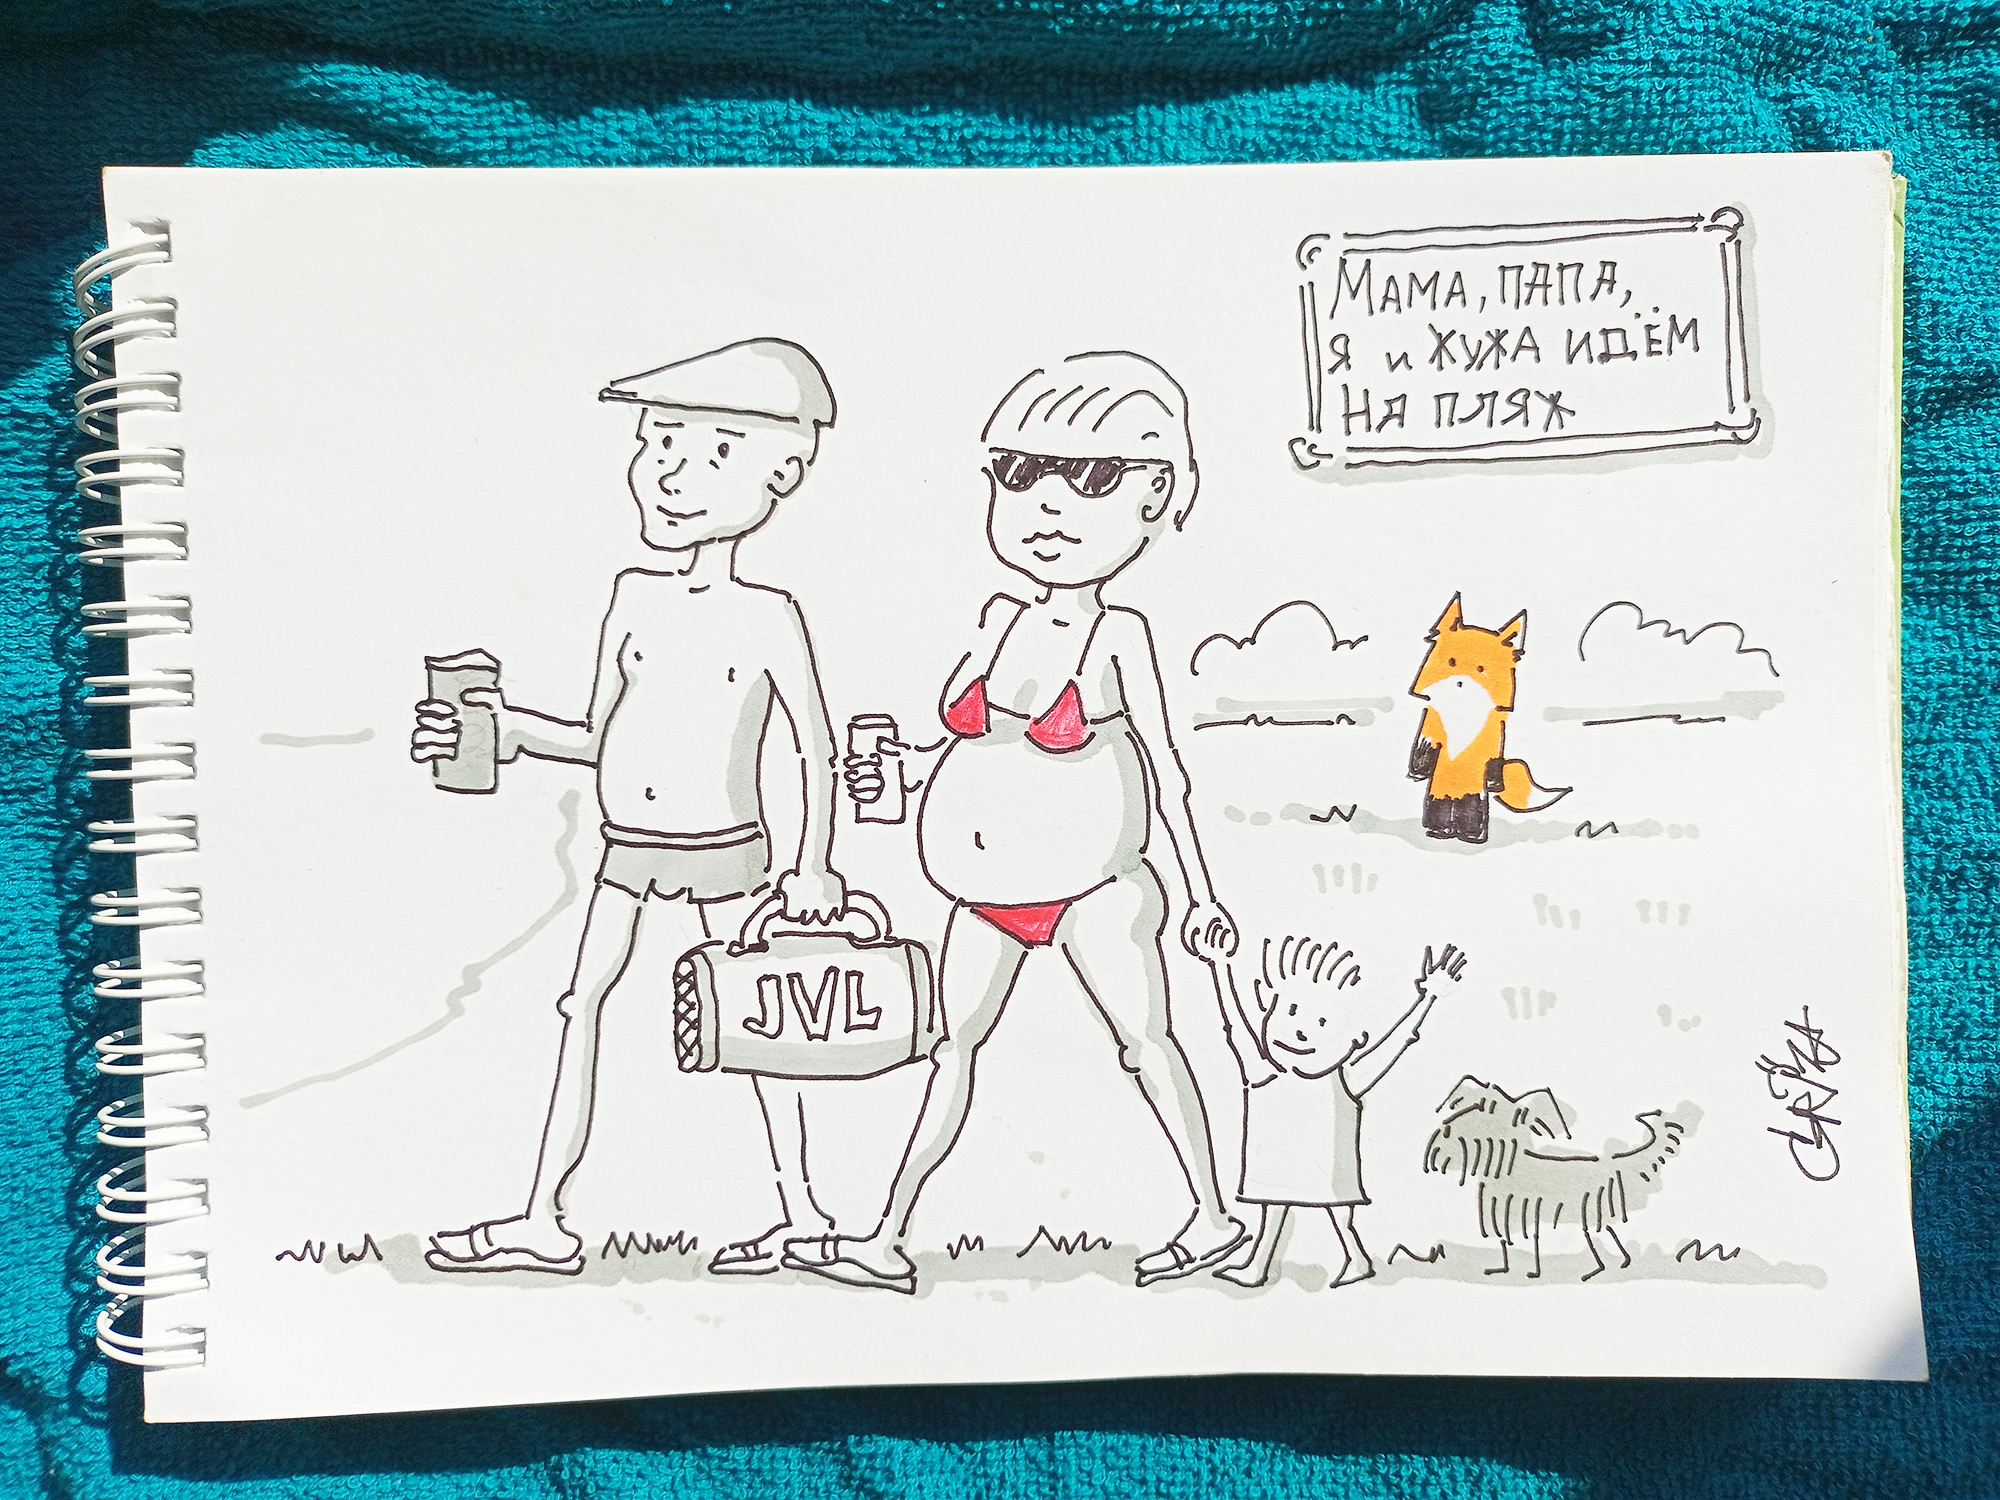 Мама, папа,
я и Жужа идём
на пляж
JVL